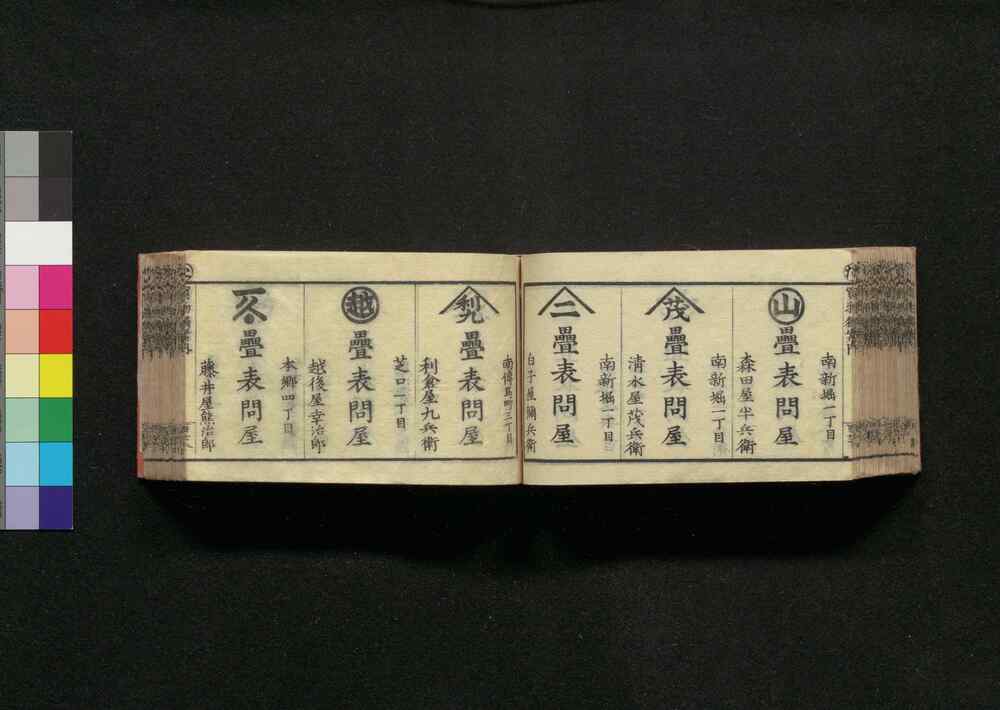 南新堀一丁目
山
疊表問屋
森田屋半兵衛
南新堀一丁目
茂
疊表問屋
清水屋茂兵衛
南新堀一丁目
二
疊表問屋
白子屋彌兵衛
南傳馬町三丁目
疊表問屋
利倉屋九兵衛
芝口一丁目
越
疊表問屋
越後屋幸治郎
本郷四丁目
疊表問屋
藤井屋熊治郎